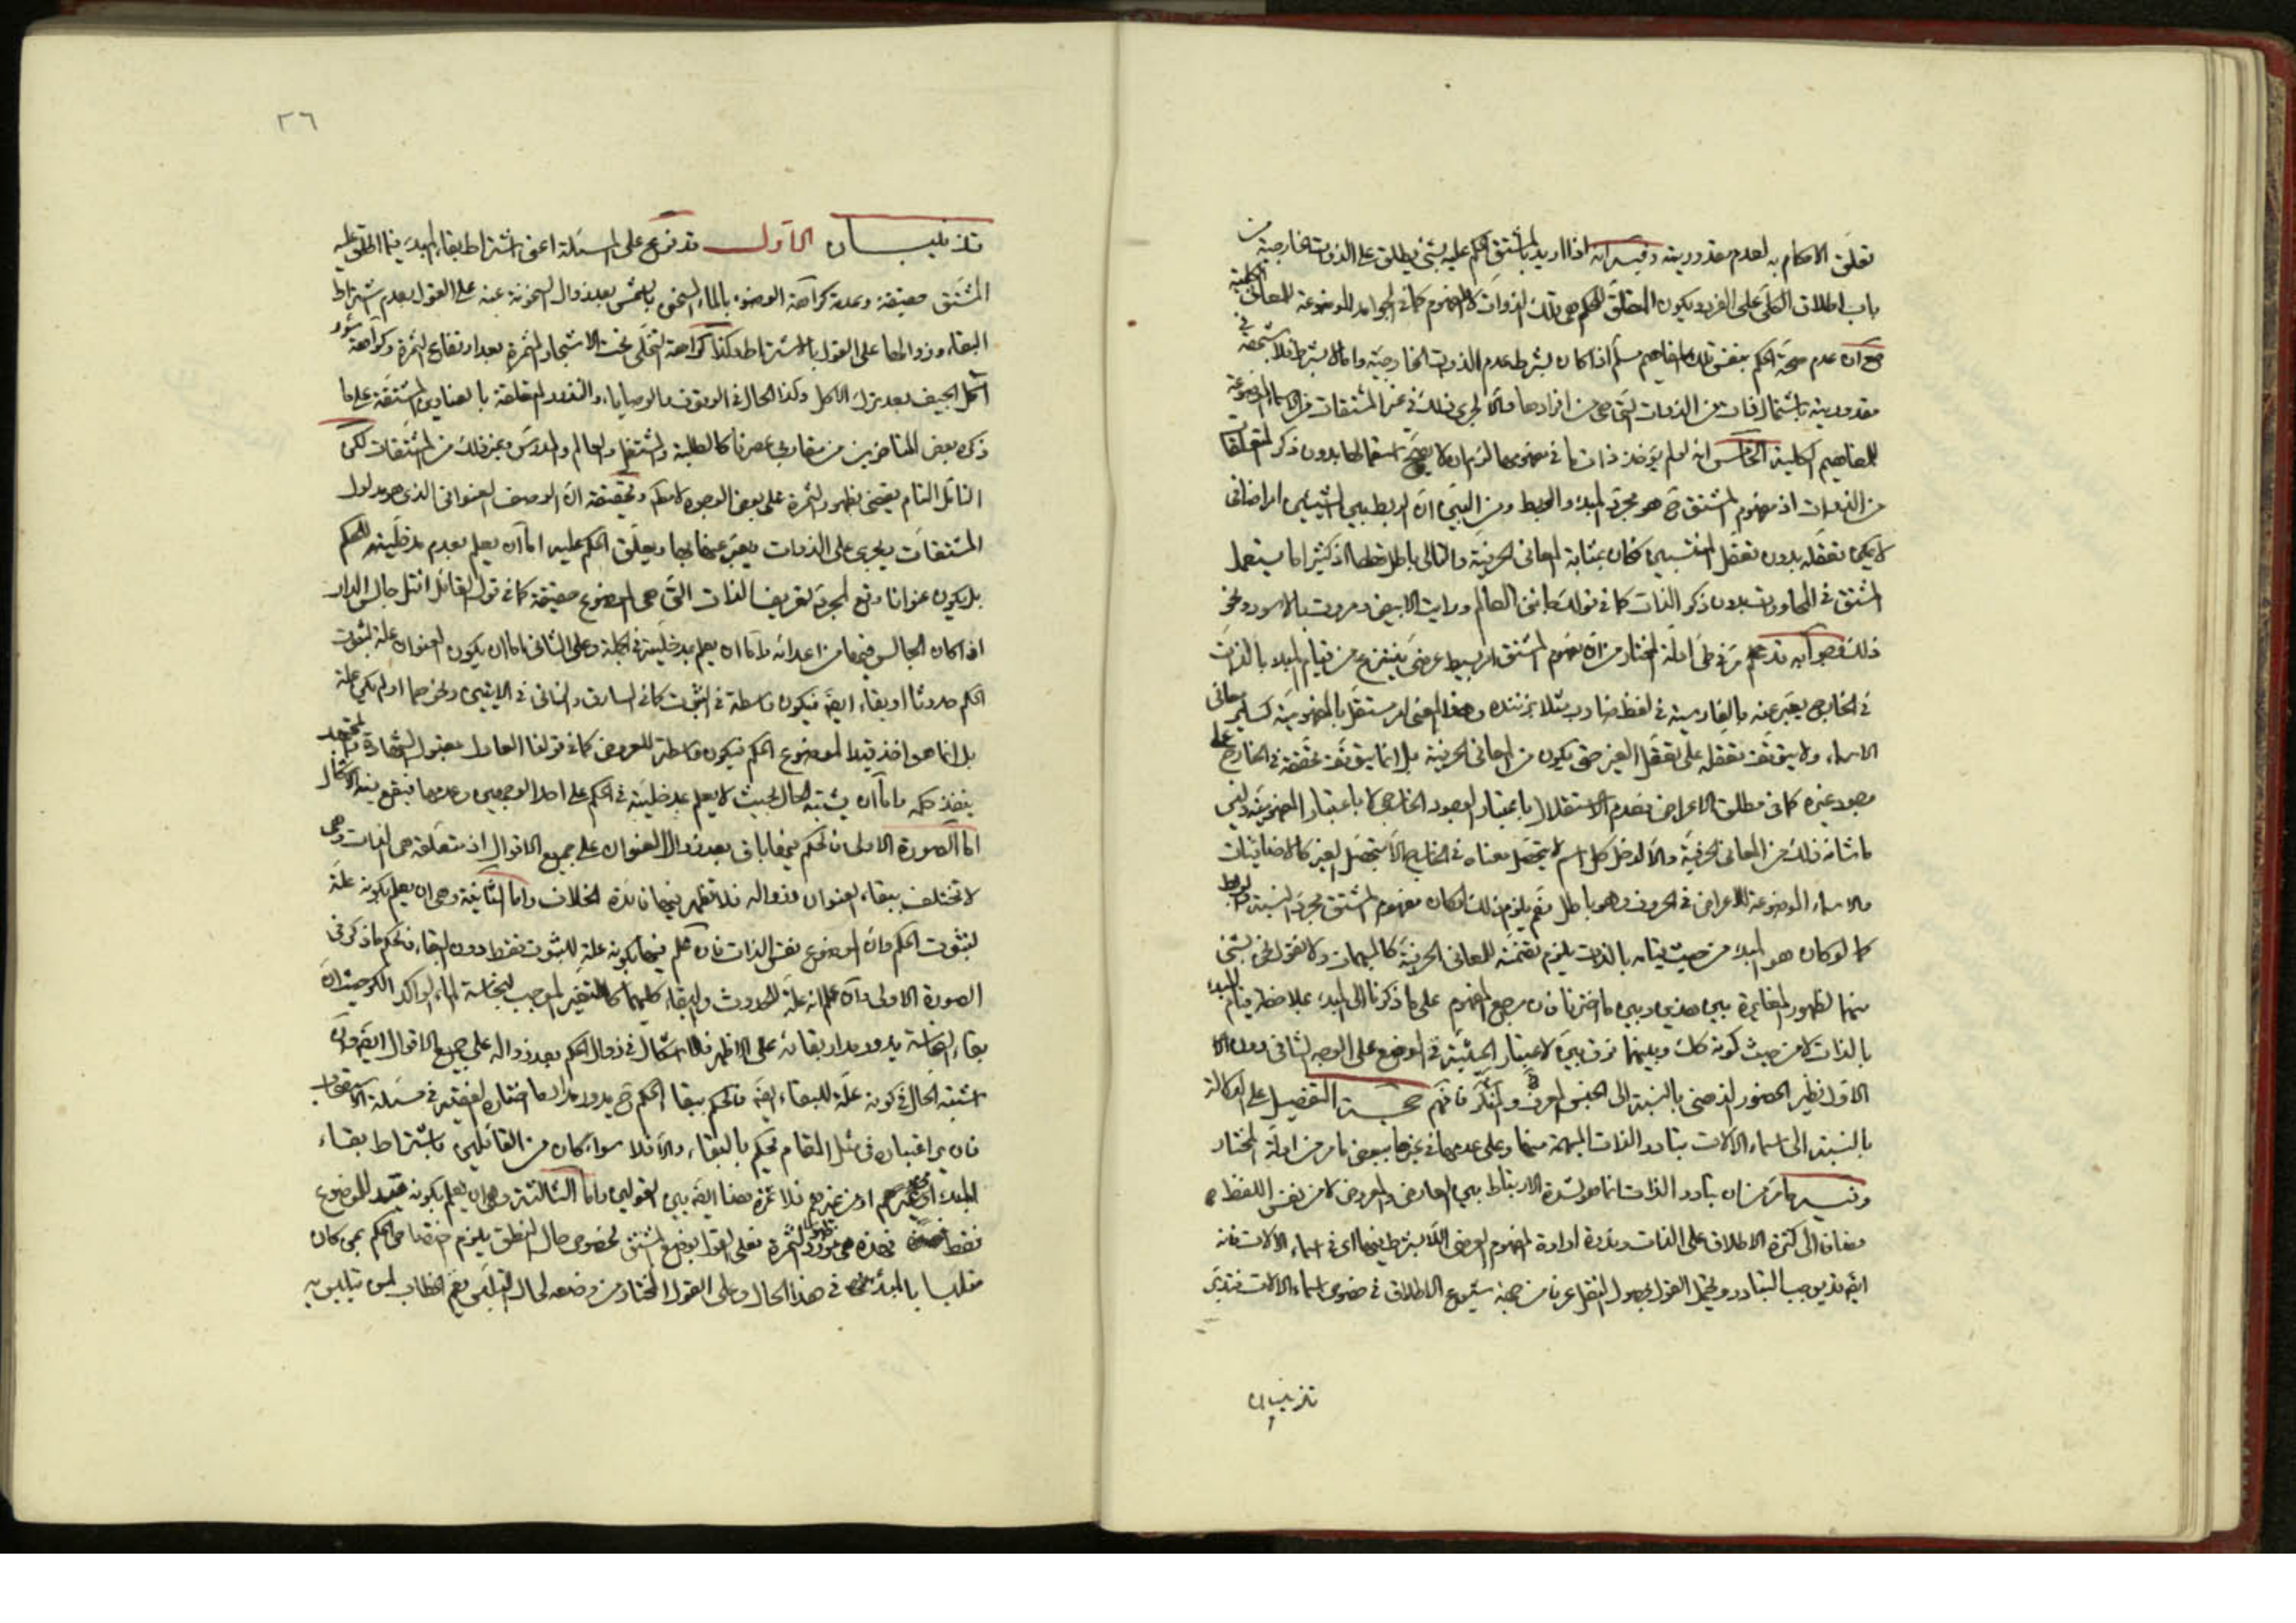 تعلق الاحكام به لعدم مقدوريته وفيه انه اذا اريد بالمشتق الحكم عليه بشئ يطلق على الذوات الخارجية من
باب اطلاق الكلى على الفرد ويكون المتعلق للحكم هى تلك الذوات لا المفهوم كما فى الجوامد الموضوعة للمعانى الكلية
مع ان عدم صحة الحكم بنفس تلك المفاهيم مسلم اذا كان بشرط عدم الذوات الخارجية واما لا بشرط فلا شبهة فى
مقدوريته باشتمال الذوات التى هى من افرادها والا لجرى ذلك فى غير المشتقات من الاسماء الموضوعة
للمفاهيم الكلية الخامس انه لو لم يؤخذ ذات ما فى مفهومها لزم ان لا يصح استعمالها بدون ذكر متعلقها
من الذوات اذ مفهوم المشتق ح هو مجرد المبدء والربط ومن البين ان الربط بين الشيئين امر اضافى
لا يمكن تعقله بدون تعقل المنتسبين فكان بمثابة المعانى الحرفية والتالى باطل قطعا اذ كثيرا ما يستعمل
المشتق فى المحاورات بدون ذكر الذات كما فى قولك جائنى العالم ورايت الابيض ومررت بالاسود ونحو
ذلك وجوابه قد علم مر فى طى ادلة المختار من ان مفهوم المشتق امر بسيط عرضى ينتزع من قيام المبدء بالذات
فى الخارج يعبر عنه بالفارسية فى لفظ ضارب مثلا بزننده وهذا المعنى امر مستقل بالمفهومية كساير معانى
الاسماء ولا يتوقف تعقله على تعقل الغير حتى يكون من المعانى الحرفية بل انما يتوقف تحققه فى الخارج على
وجود غيره كما فى مطلق الاعراض فعدم الاستقلال باعتبار الوجود الخارجى لا باعتبار المفهومية وليس
ما شانه ذلك من المعانى الحرفية والا لدخل كل اسم لا يتحصل معناه فى الخارج الا بتحصل الغير كالاضافيات
والاسماء الموضوعة للاعراض فى الحروف وهو باطل نعم يلزم ذلك لو كان مفهوم المشتق مجرد النسبة والربط
كما لو كان هو المبدء من حيث قيامه بالذات يلزم تضمنه للمعانى الحرفية كالمبهمات ولا نقول نحن بشئ
منهما لظهور المغايرة بين هذين وبين ما اخترنا فان مرجع المفهوم على ما ذكرنا الى المبدء بملاحظة قيام المبدء
بالذات لا من حيث كونه كك وبينهما فرق بين لاعتبار الحيثية فى الوضع على الوجه الثانى دون
الاول نظير الحضور الذهنى بالنسبة الى الجنس المعرف والمنكر فافهم حجة التفصيل على الدلالة
بالنسبة الى اسماء الالات تبادر الذات المبهمة منها وعلى عدمها فى غيرها ببعض ما مر من ادلة المختار
وفيه ما مر من ان تبادر الذات انما هو لشدة الارتباط بين العارض والمعروض لا من نفس اللفظ
مضافا الى كثرة الاطلاق على الذات وندرة ارادة المفهوم العرضى اللا بشرط فيها اى فى اسماء الالات فانه
ايض قد يوجب التبادر ويحتمل القول بحصول النقل عرفا من جهة شيوع الاطلاق فى خصوص اسماء الالات فتدبر
تذنيبان
٢٦
تذنيبان الاول قد تفرع على المسئلة اعنى اشتراط بقاء المبدء فيما اطلق عليه
المشتق حقيقة وعدمه كراهة الوضوء بالماء المسخن بالشمس بعد زوال السخونة عنه على القول بعدم اشتراط
البقاء وزوالها على القول بالاشتراط وكذا كراهة التخلى تحت الاشجار المثمرة بعد ارتفاع الثمرة وكراهة سؤر
اكل الجيف بعد ترك الاكل وكذا الحال فى الوقوف والوصايا والنذور المتعلقة بالعناوين المشتقة على ما
ذكره بعض المتاخرين من مقاربى عصرنا كالطلبة والمشتغل والعالم والمدرس وغير ذلك من المشتقات لكن
التأمل التام يقتضى بظهور الثمرة على بعض الوجوه لا مطلقا وتحقيقه ان الوصف العنوانى الذى هو مدلول
المشتقات يجرى على الذوات يعبر عنها بها ويعلق الحكم عليه اما ان يعلم بعدم مدخليته للحكم
بل يكون عنوانا وقع لمجرد تعريف الذات التى هى الموضوع حقيقة كما فى قول القائل اقتل جالس الدار
اذا كان الجالس فيها من اعدائه واما ان يعلم مدخليته فى الجملة وعلى الثانى فاما ان يكون العنوان علة لثبوت
الحكم حدوثا او بقاء ايض فيكون واسطة فى الثبوت كما فى السارق والزانى فى الايتين ونحوهما او لم يكن علة
بل انما هو اخذ قيدا لموضوع الحكم فيكون واسطة للعروض كما فى قولنا العادل مقبول الشهادة والمجتهد
ينفذ حكمه واما ان يشتبه الحال بحيث لا يعلم مدخليته فى الحكم على احد الوجهين وعدمها فيقع فيه الاشكال
اما الصورة الاولى فالحكم فيها باق بعد زوال العنوان على جميع الاقوال اذ متعلقه هى الذات وهى
لا تختلف ببقاء العنوان وزواله فلا تظهر فيها فائدة الخلاف واما الثانية وهى ان يعلم بكونه علة
لثبوت الحكم وان الموضوع نفس الذات فان علم فيها بكونه علة للثبوت فقط دون البقاء فالحكم ما ذكر فى
الصورة الاولى وان علم انه علة للحدوث والبقاء كليهما كالتغير الموجب لنجاسة الماء الراكد الكر حيث ان
بقاء النجاسة يدور مدار بقائه على الاظهر فلا اشكال فى زوال الحكم بعد زواله على جميع الاقوال ايض وان
اشتبه الحال فى كونه علة للبقاء ايض فالحكم ببقاء الحكم ح يدور مدار ما اختاره الفقيه فى مسئلة الاستصحاب
فان يرى اعتباره فى مثل المقام يحكم بالبقاء والا فلا سواء كان من القائلين باشتراط بقاء
المبدء او غيرهم فلا ثمرة هنا ايض بين القولين واما الثالثة وهى ان يعلم بكونه قيد للموضوع
فقط فهذه هى مورد ظهور الثمرة فعلى القول بوضع المشتق لخصوص حال النطق يلزم اختصاص الحكم بمن كان
متلبسا بالمبدء فى هذا الحال وعلى القول المختار من وضعه لحال التلبس يعم الخطاب لمن تلبس به